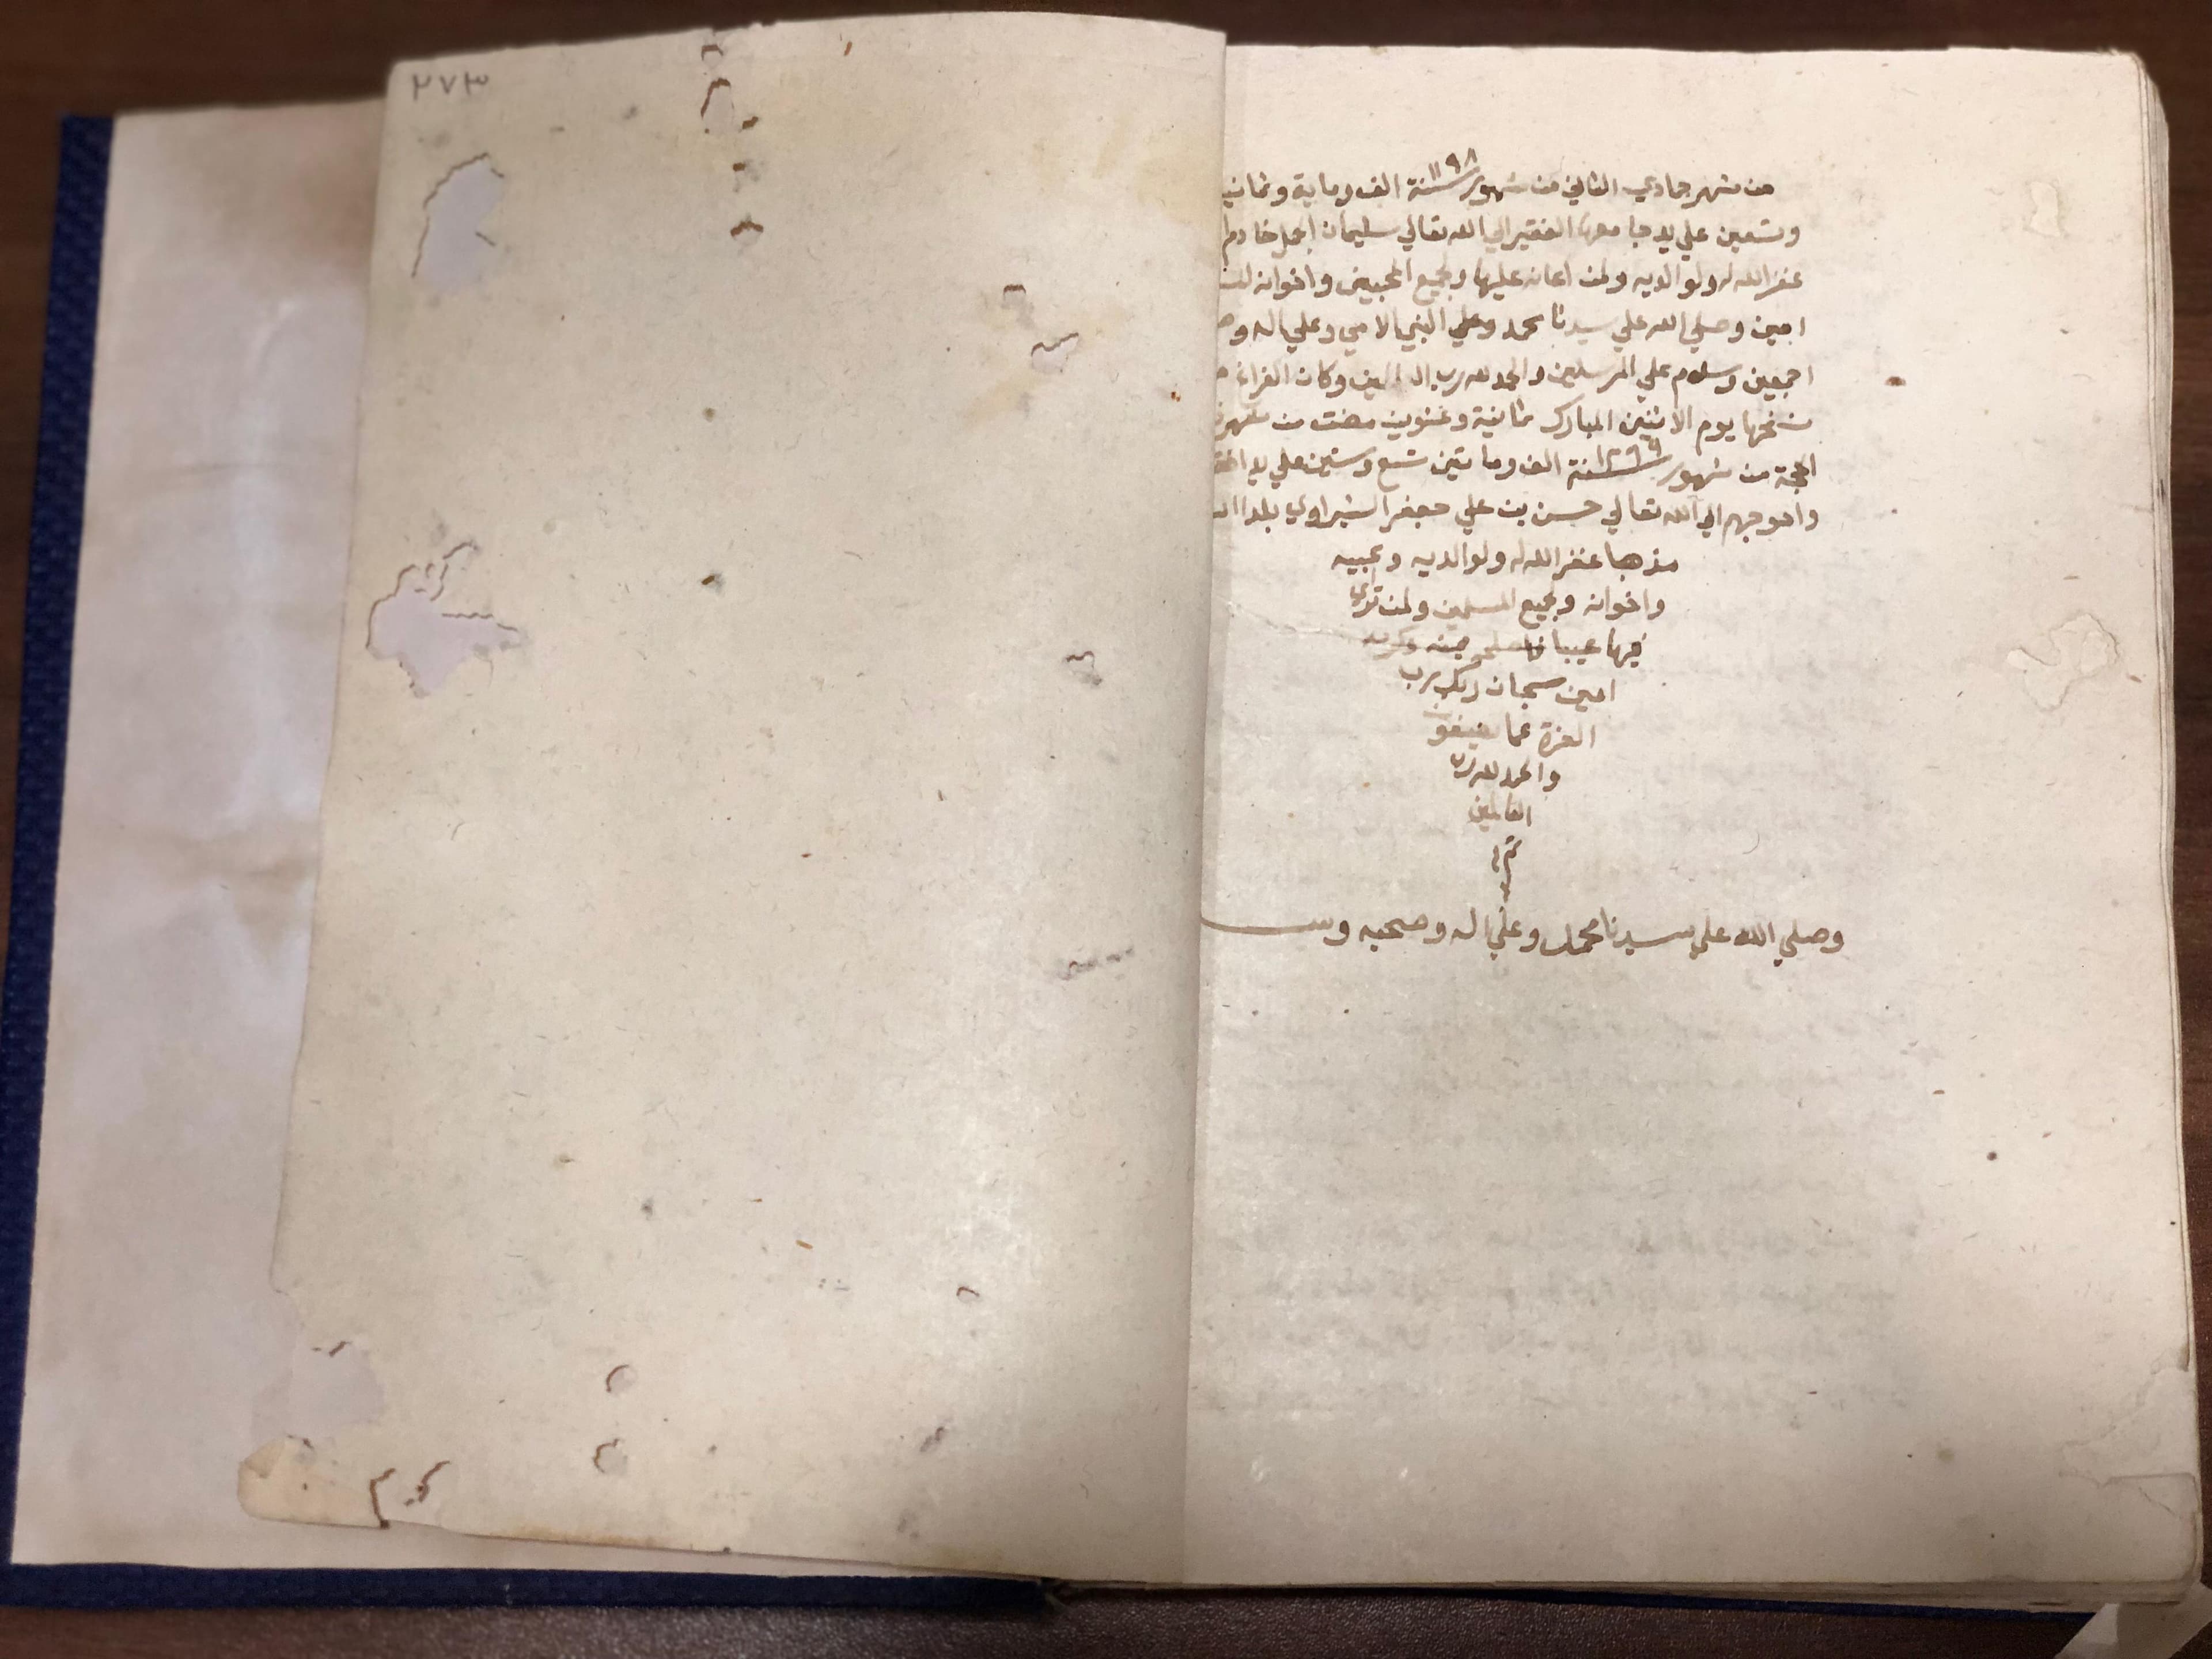 من شهر جمادي الثاني من شهور سنة ١١٩٨ الف وماية وثمانيـ
وتسعين علي يد جامعها الفقير الي الله تعالي سليمان الجمل خادم
غفر الله له ولوالديه ولمن اعانه عليها ولجميع المحبين واخوانه
امين وصلي الله علي سيدنا محمد وعلي النبي الامي وعلي اله وصـ
اجمعين وسلام علي المرسلين والحمد لله رب العالمين وكان الفراغ
نسخها يوم الاثنين المبارك ثمانية وعشرين مضت من شهر
الحجة من شهور سنة ١٢٦٩ الف ومايتين تسع وستين علي يد افقـ
واحوجهم الي الله تعالي حسن بن علي جعفر الشبراوي بلدا
مذهبا غفر الله له ولوالديه ومحبيه
واخوانه وجميع المسلمين ولمن تراي
فيها عيبا
امين سبحان ربك رب
العزة عما يصفون
والحمد لله رب
العالمين
تم
وصلي الله علي سيدنا محمد وعلي اله وصحبه وسـ
٢٧٣